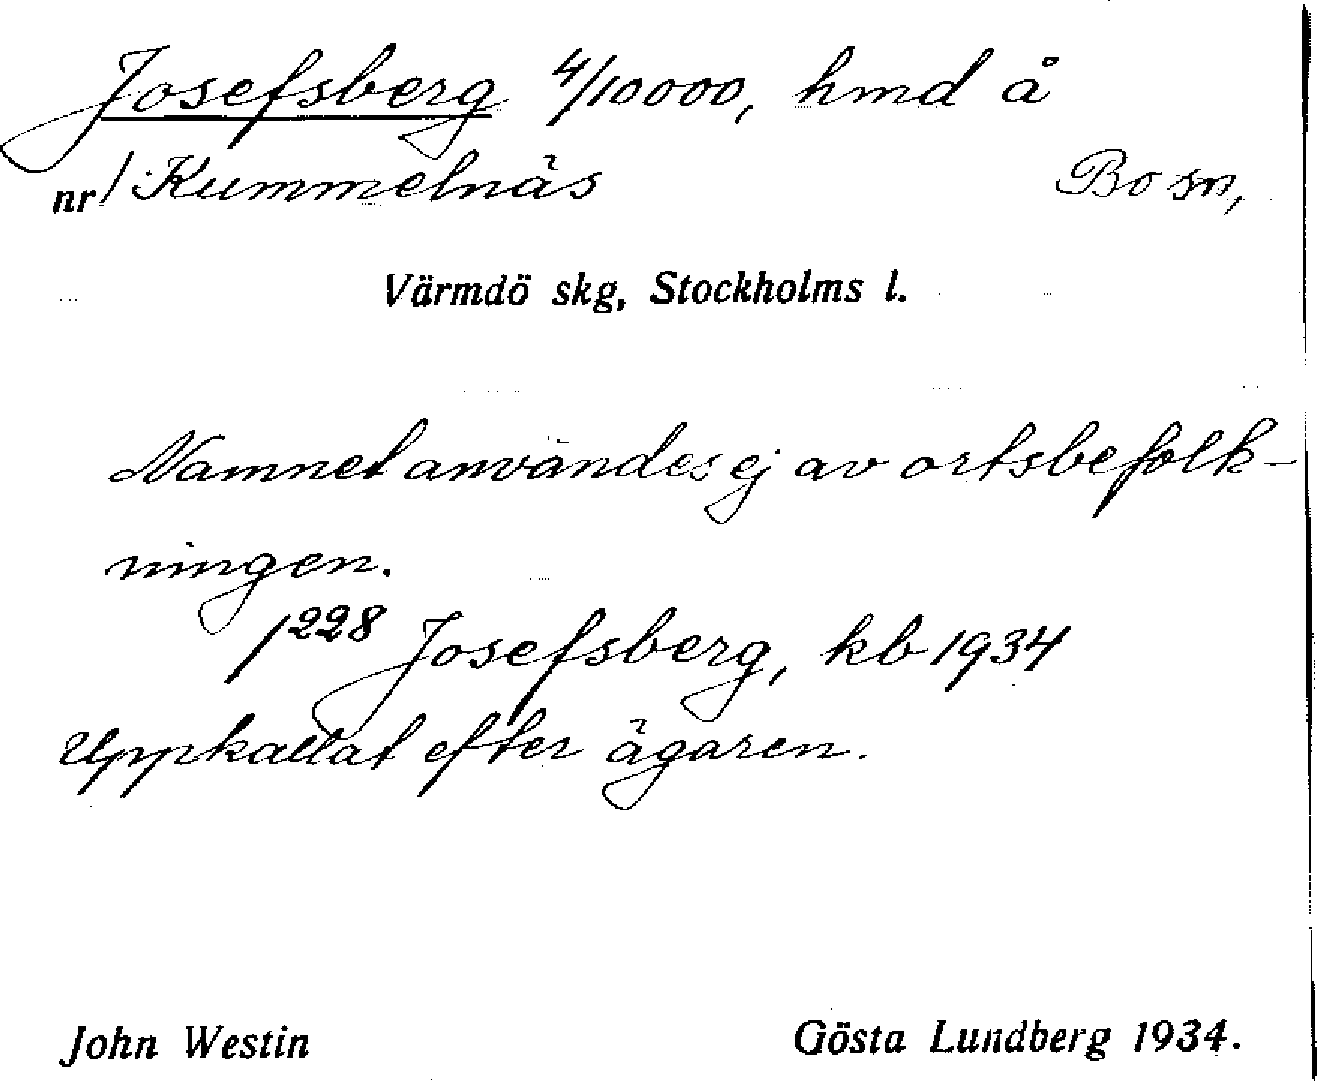 Josefsberg 4/10000, hmd å
nr 1 Kummelnäs Bo sn,
Värmdö skg, Stockholms l.
Namnet användes ej av ortsbefolk-
ningen.
1²²⁸ Josefsberg, kb 1934
Uppkallat efter ägaren.
John Westin Gösta Lundberg 1934.